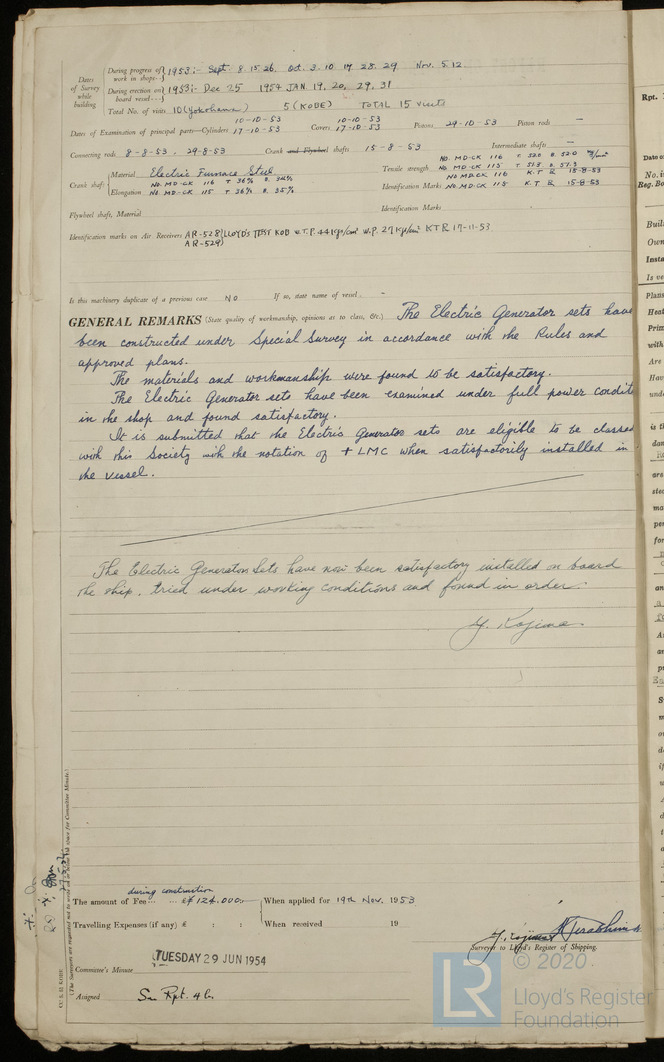 Dates of Survey while building
During progress of work in shops 1953:- Sept. 8. 15. 26. Oct. 3. 10. 19. 28. 29. Nov. 5. 12.
During erection on board vessel 1953:- Dec 25 1954 JAN. 19, 20, 29, 31
Total No. of visits 10 (Yokohama) 5 (KOBE) TOTAL 15 visits
Dates of Examination of principal parts—Cylinders 10-10-53 17-10-53 Covers 10-10-53 17-10-53 Pistons 29-10-53 Piston rods —
Connecting rods 8-8-53. 29-8-53 Crank and Flywheel shafts 15-8-53 Intermediate shafts —
Crank shaft Material Electric Furnace Steel
Elongation NO. MD-CK 116 T 36% B. 34%
NO. MD-CK 115 T 36% B. 35%
Tensile strength NO. MD-CK 116 T. 52.0 B. 52.0 kg/mm²
NO. MD-CK 115 T. 51.8 B. 51.3
Identification Marks NO. MD-CK 116 K.T R 15-8-53
NO. MD-CK 115 K.T R 15-8-53
Flywheel shaft, Material
Identification Marks
Identification marks on Air Receivers AR-528 LLOYD'S TEST KOB W.T.P. 44 Kg/cm² W.P. 27 Kg/cm² KTR 17-11-53
AR-529
Is this machinery duplicate of a previous case NO If so, state name of vessel —
GENERAL REMARKS (State quality of workmanship, opinions as to class, &c.) The Electric Generator sets have
been constructed under Special Survey in accordance with the Rules and
approved plans.
The materials and workmanship were found to be satisfactory.
The Electric Generator sets have been examined under full power condit
in the shop and found satisfactory.
It is submitted that the Electric Generator sets are eligible to be classed
with this Society with the notation of + LMC when satisfactorily installed in
the vessel.
The Electric Generators Sets have now been satisfactory installed on board
the ship, tried under working conditions and found in order.
Y. Kojima
during construction
The amount of Fee ¥ 124,000:- When applied for 19th Nov. 1953
Travelling Expenses (if any) £ : : When received 19
Y. Kojima
Surveyor to Lloyd's Register of Shipping.
TUESDAY 29 JUN 1954
Committee's Minute
Assigned See Rpt. 4b.
(The Surveyors are requested not to write on or below the space for Committee Minute.)
Rpt.
© 2020
LR
Lloyd's Register
Foundation